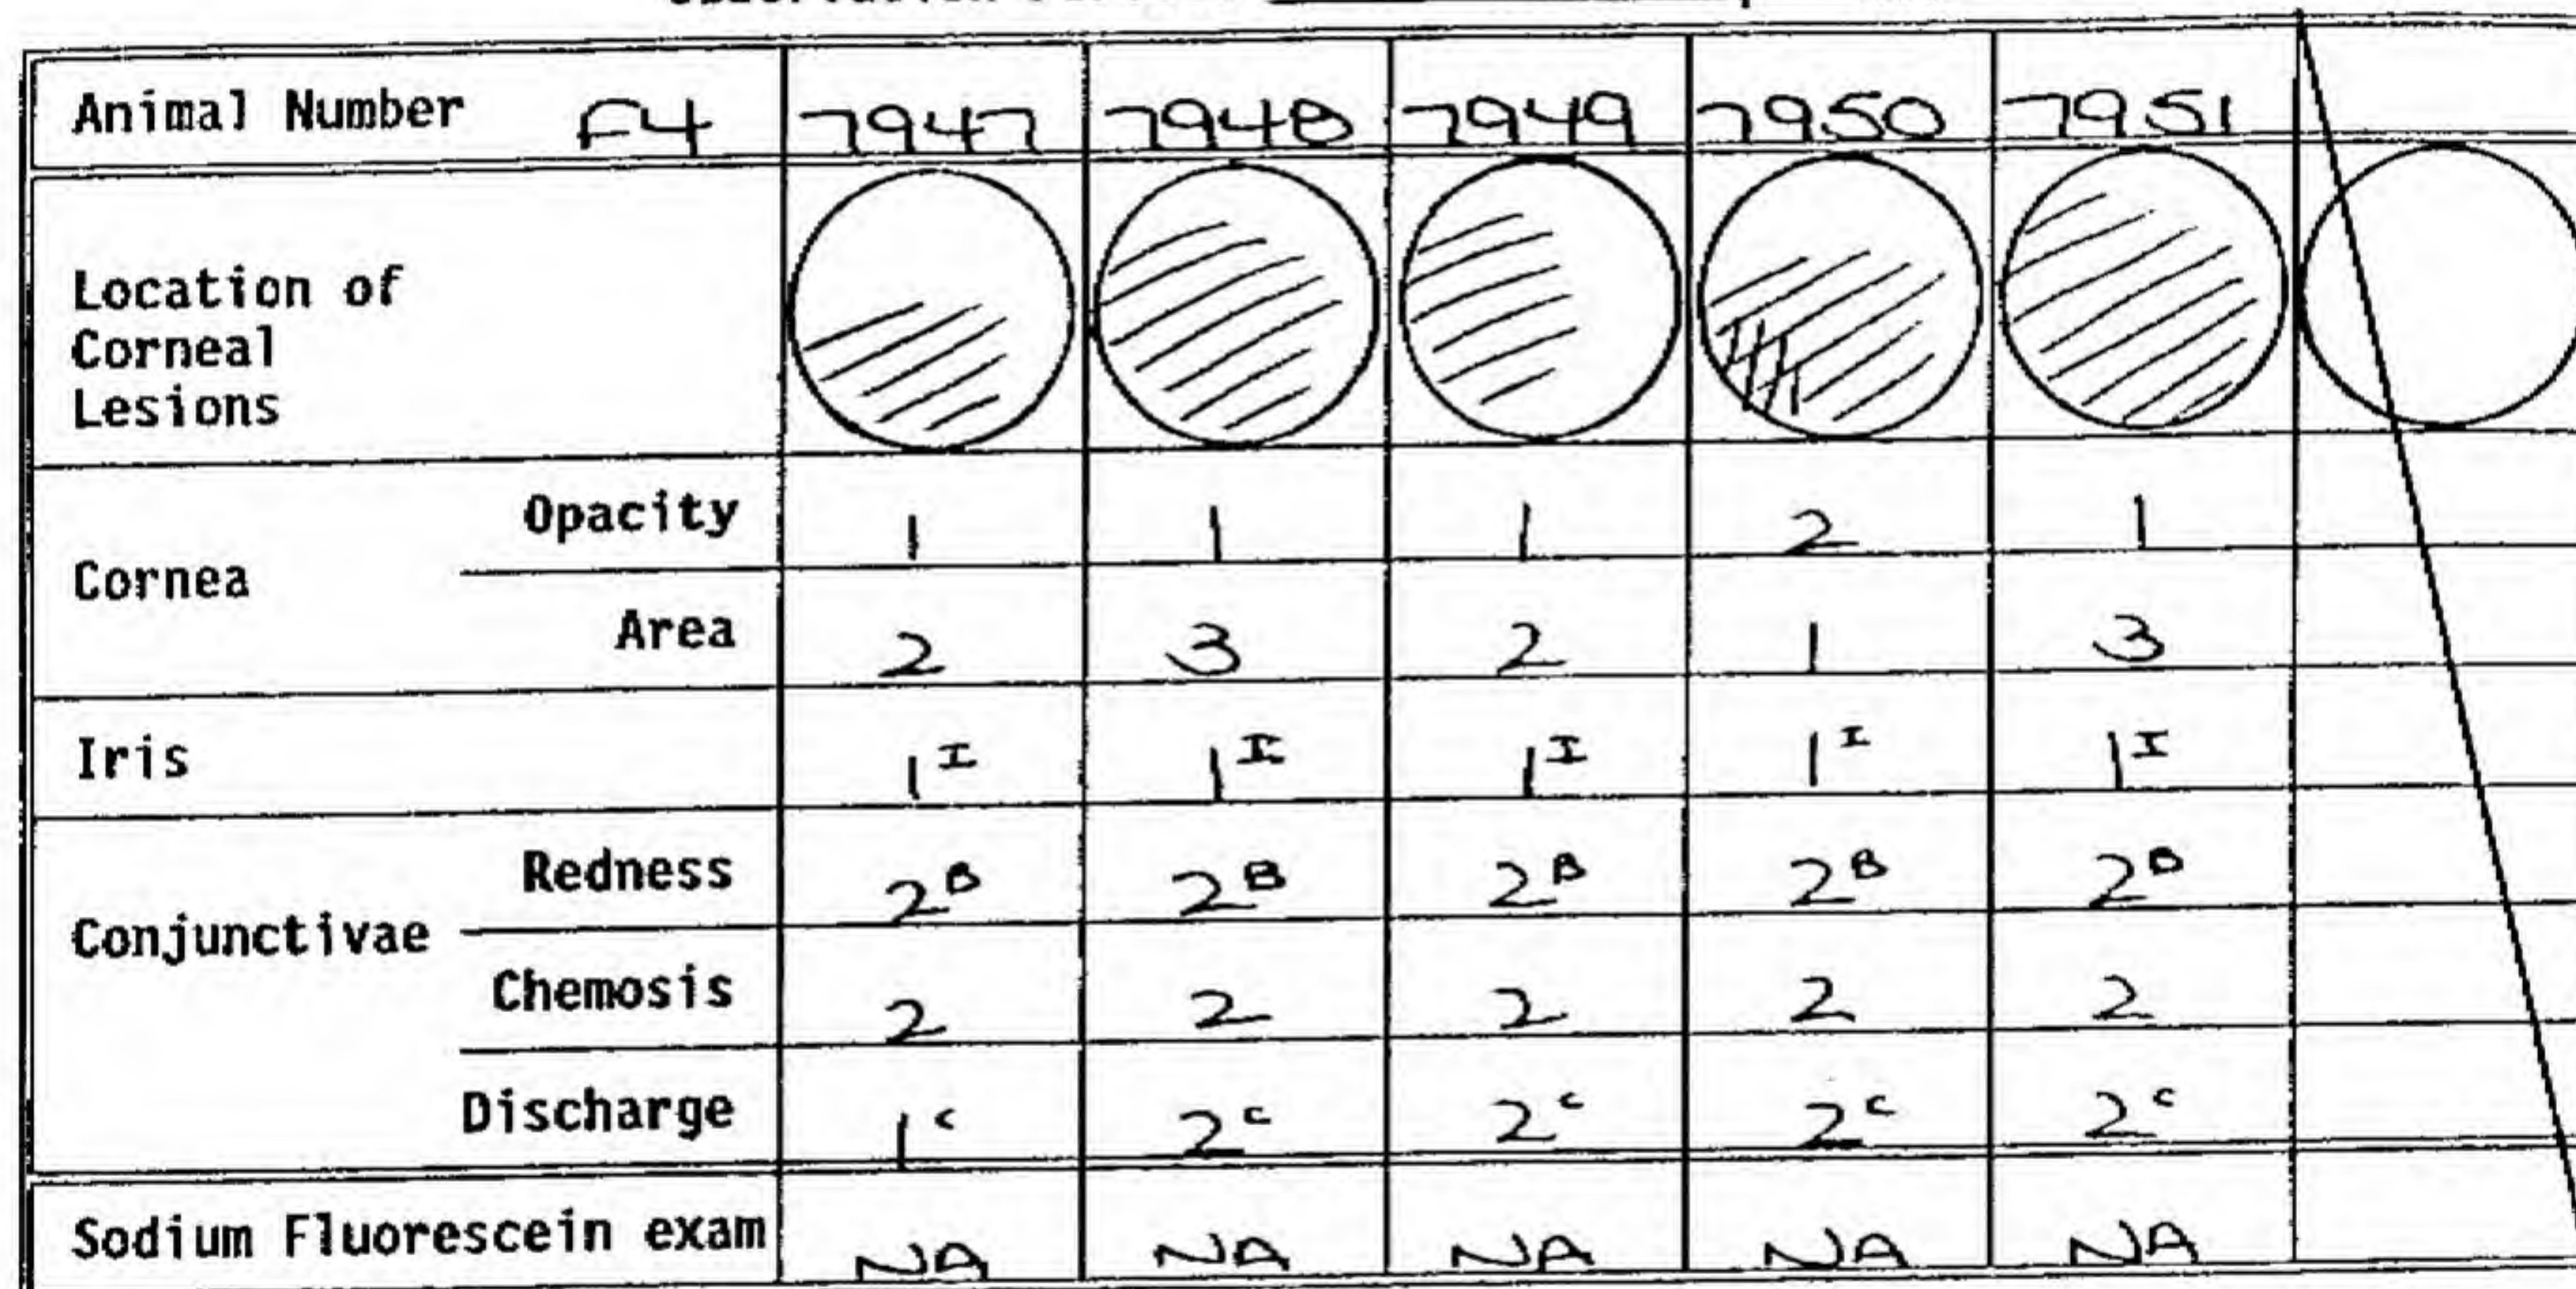 Animal Number F4 7947 7948 7949 7950 7951
Location of
Corneal
Lesions
Opacity 1 1 1 2 1
Cornea
Area 2 3 2 1 3
Iris 1 I 1 I 1 I 1 I 1 I
Redness 2 B 2 B 2 B 2 B 2 B
Conjunctivae
Chemosis 2 2 2 2 2
Discharge 1 c 2 c 2 c 2 c 2 c
Sodium Fluorescein exam NA NA NA NA NA